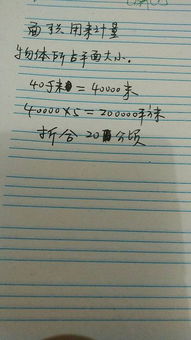 面积用来计量
物体所占平面大小.
40千米=40000米
40000×5=200000平方米
折合20公顷